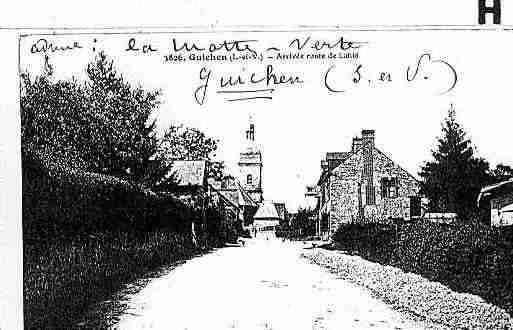 H
adresse : la Motte - Verte
3826. Guichen (I.-et-V.) — Arrivée route de Lohéac
Guichen (I. et V.)